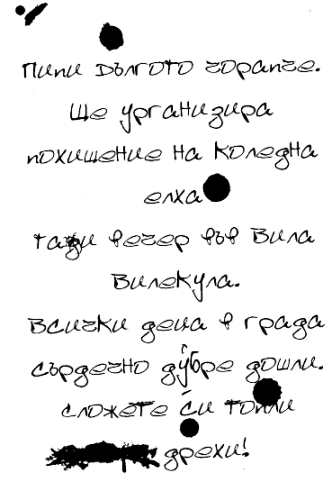 Пипи Дългото чорапче.
Ще урганизира
похищение на Коледна
елха
тази вечер във Вила
Вилекула.
Всички деца в града
сърдечно дубре дошли.
сложете си топли
дрехи!